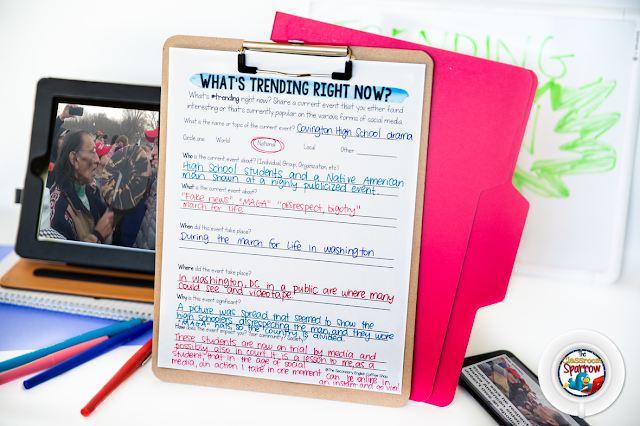 WHAT'S TRENDING RIGHT NOW?
What's #trending right now? Share a current event that you either found
interesting or that's currently popular on the various forms of social media.
What is the name or topic of the current event? Covington High School drama
Circle one: World National Local Other
Who is this current event about? (Individual, Group, Organization, etc.)
High School students and a Native American
man shown at a highly publicized event.
What is the current event about?
"Fake news" "MAGA" "disrespect, bigotry"
march for life
When did this event take place?
During the march for life in washington
Where did the event take place?
In Washington, DC in a public are where many
could see and videotape.
Why is this event significant?
A picture was spread that seemed to show the
high schoolers disrespecting the man, and they wore
"MAGA" hats, so the country is divided.
How does this event impact you? Your community? Society?
These students are now on trial by media and
possibly also in court. It is a lesson to me, as a
student, that in the age of social
media, an action I take in one moment can be online in
an instant and go viral
©The Secondary English Coffee Shop
TRENDING
The
Classroom
Sparrow